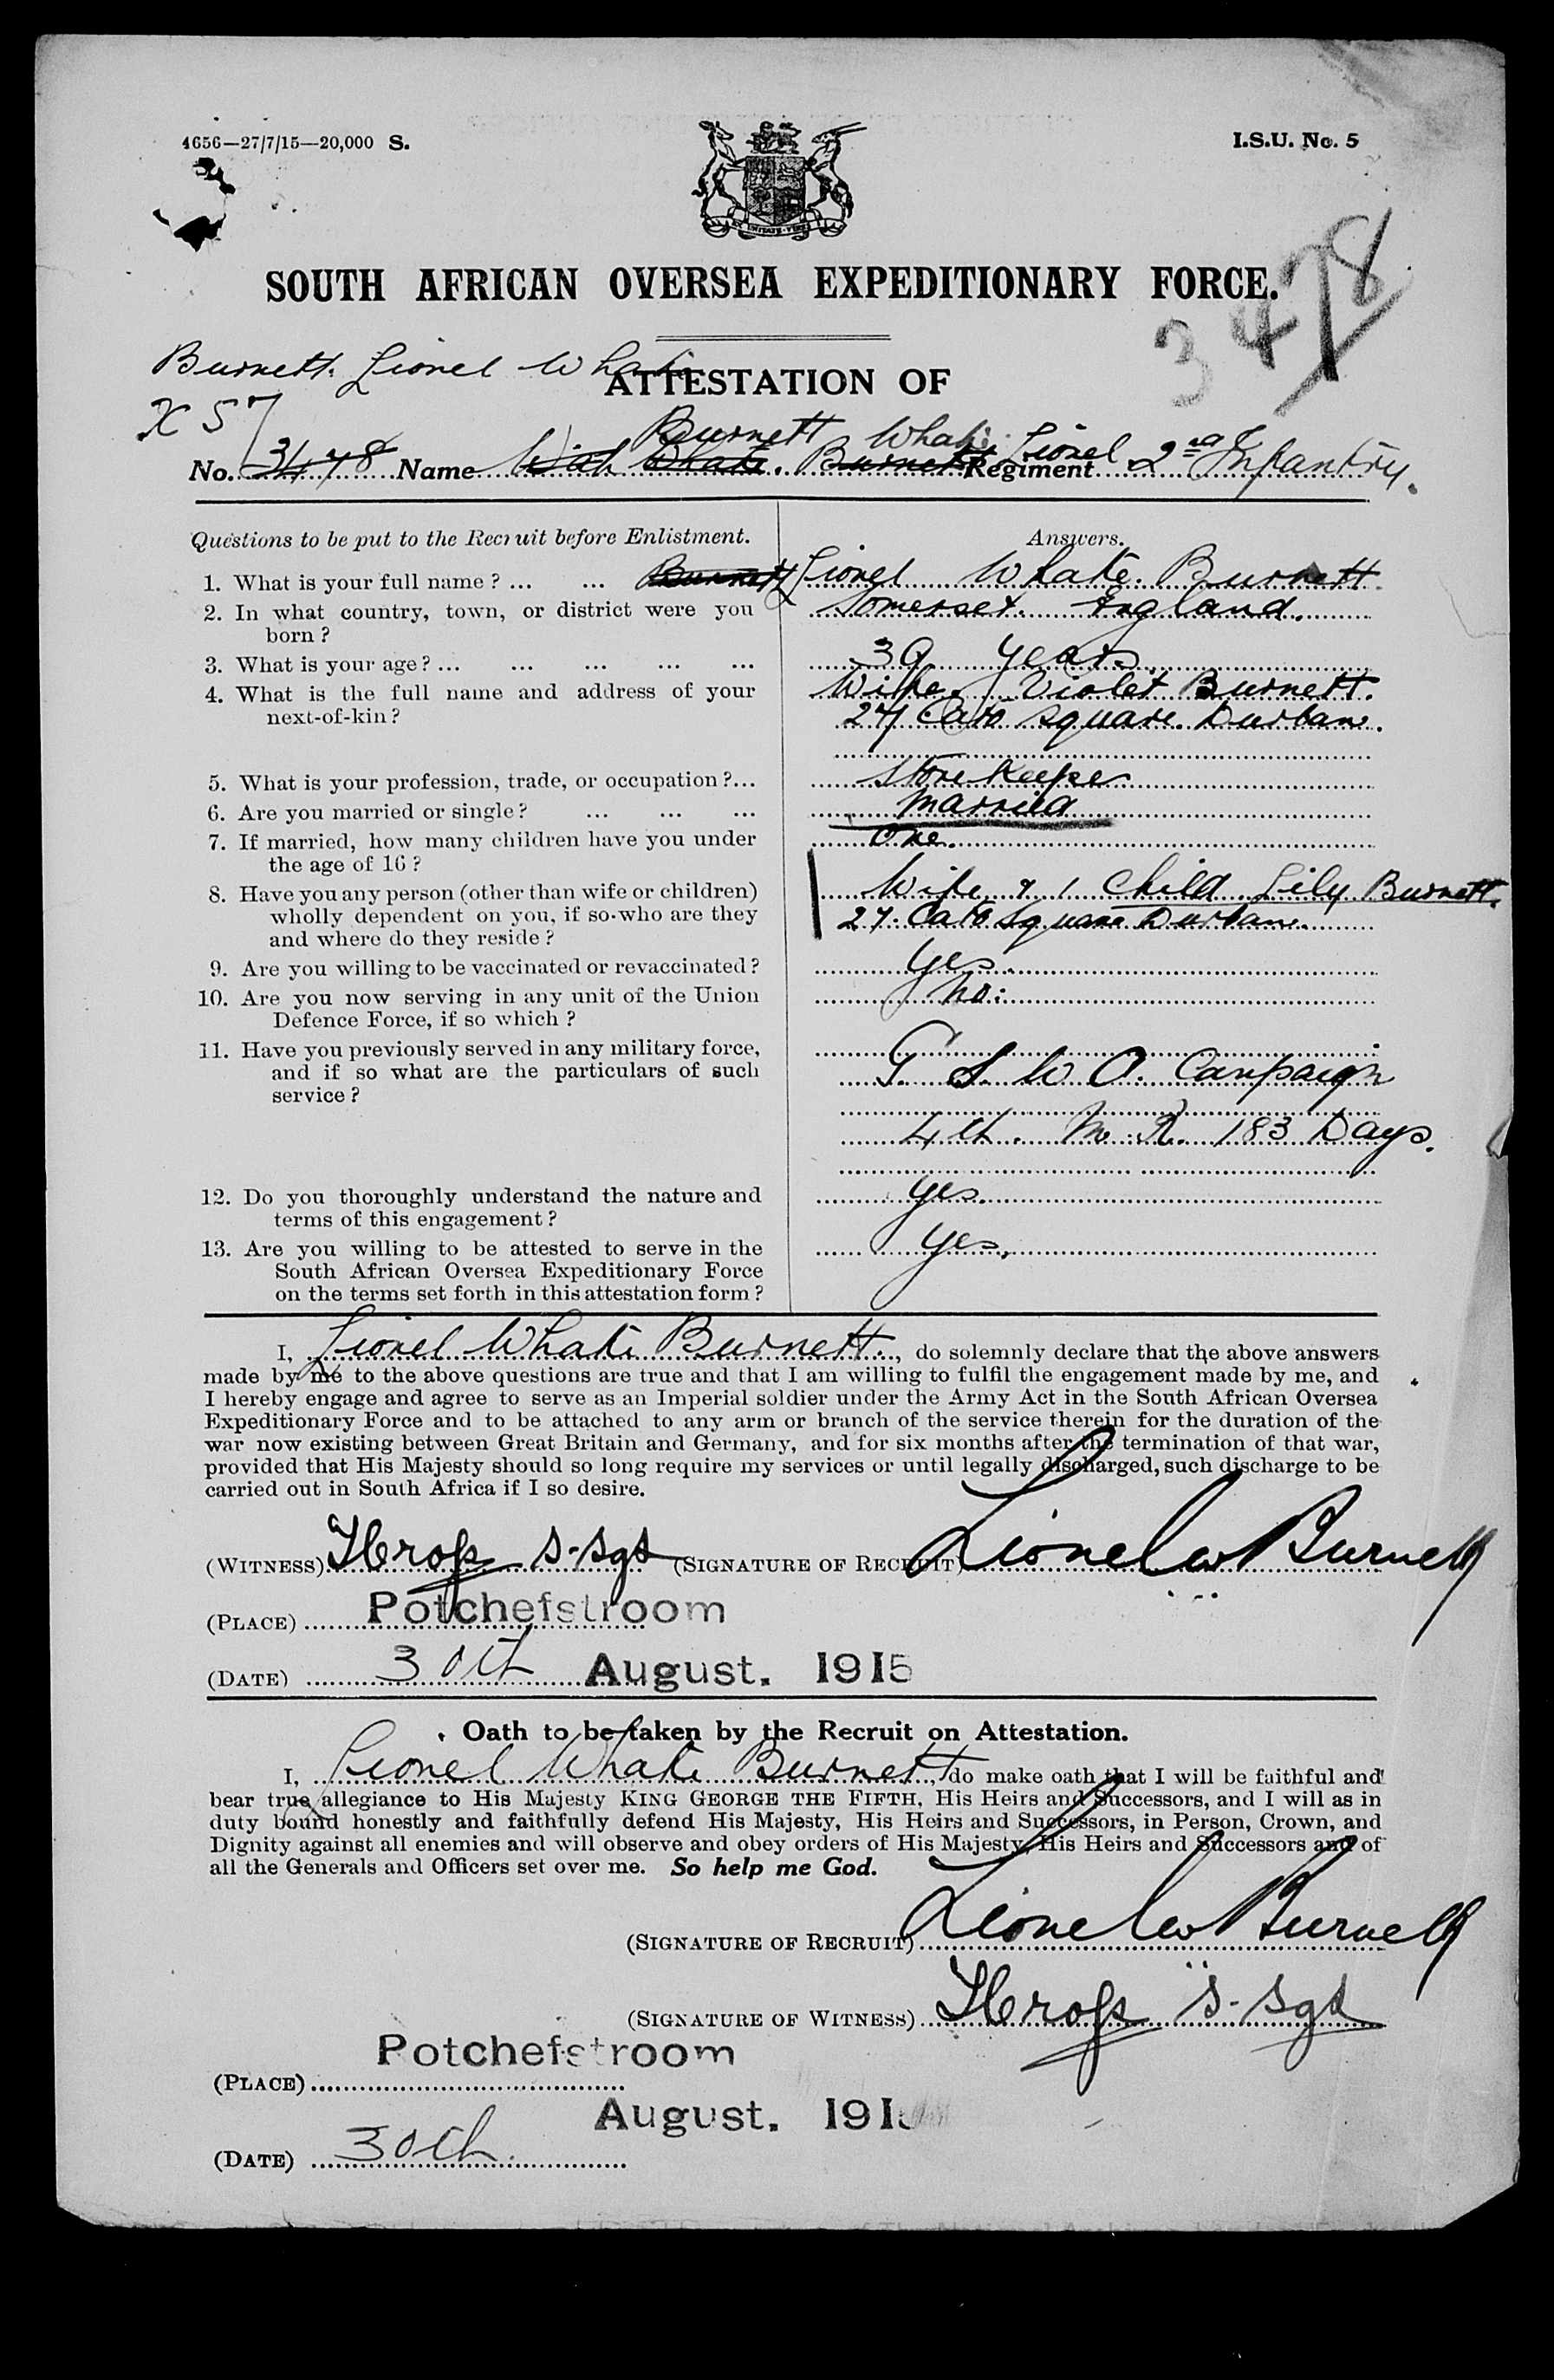 4656—27/7/15—20,000 S.
I.S.U. No. 5
SOUTH AFRICAN OVERSEA EXPEDITIONARY FORCE.
3478
Burnett. Lionel Whate
ATTESTATION OF
X 57
Burnett Whate Lionel
No. 3478 Name Whate. Burnett Regiment 2nd Infantry.
Questions to be put to the Recruit before Enlistment.
Answers.
1. What is your full name ? ... ... Burnett Lionel Whate. Burnett.
2. In what country, town, or district were you born ?
Somerset. England.
3. What is your age ? ... ... ... ... ... 39 years
4. What is the full name and address of your next-of-kin ?
Wife. Violet Burnett.
27 Cato square. Durban.
5. What is your profession, trade, or occupation ?... Store Keeper.
6. Are you married or single ? ... ... ... married
7. If married, how many children have you under the age of 16 ?
One.
8. Have you any person (other than wife or children) wholly dependent on you, if so who are they and where do they reside ?
Wife & 1 Child. Lily Burnett.
27. Cato Square Durban.
9. Are you willing to be vaccinated or revaccinated ? Yes.
10. Are you now serving in any unit of the Union Defence Force, if so which ?
No:
11. Have you previously served in any military force, and if so what are the particulars of such service ?
G. S. W A. Campaign
4th. M. R. 183 Days.
12. Do you thoroughly understand the nature and terms of this engagement ?
yes.
13. Are you willing to be attested to serve in the South African Oversea Expeditionary Force on the terms set forth in this attestation form ?
yes.
I, Lionel Whate Burnett., do solemnly declare that the above answers
made by me to the above questions are true and that I am willing to fulfil the engagement made by me, and
I hereby engage and agree to serve as an Imperial soldier under the Army Act in the South African Oversea
Expeditionary Force and to be attached to any arm or branch of the service therein for the duration of the
war now existing between Great Britain and Germany, and for six months after the termination of that war,
provided that His Majesty should so long require my services or until legally discharged, such discharge to be
carried out in South Africa if I so desire.
(WITNESS) S-Sgt (SIGNATURE OF RECRUIT) Lionel W Burnett
(PLACE) Potchefstroom
(DATE) 30th August. 1915
Oath to be taken by the Recruit on Attestation.
I, Lionel Whate Burnett, do make oath that I will be faithful and
bear true allegiance to His Majesty KING GEORGE THE FIFTH, His Heirs and Successors, and I will as in
duty bound honestly and faithfully defend His Majesty, His Heirs and Successors, in Person, Crown, and
Dignity against all enemies and will observe and obey orders of His Majesty, His Heirs and Successors and of
all the Generals and Officers set over me. So help me God.
(SIGNATURE OF RECRUIT) Lionel W Burnett
(SIGNATURE OF WITNESS) S-Sgt
Potchefstroom
(PLACE)
August. 191
(DATE) 30th.